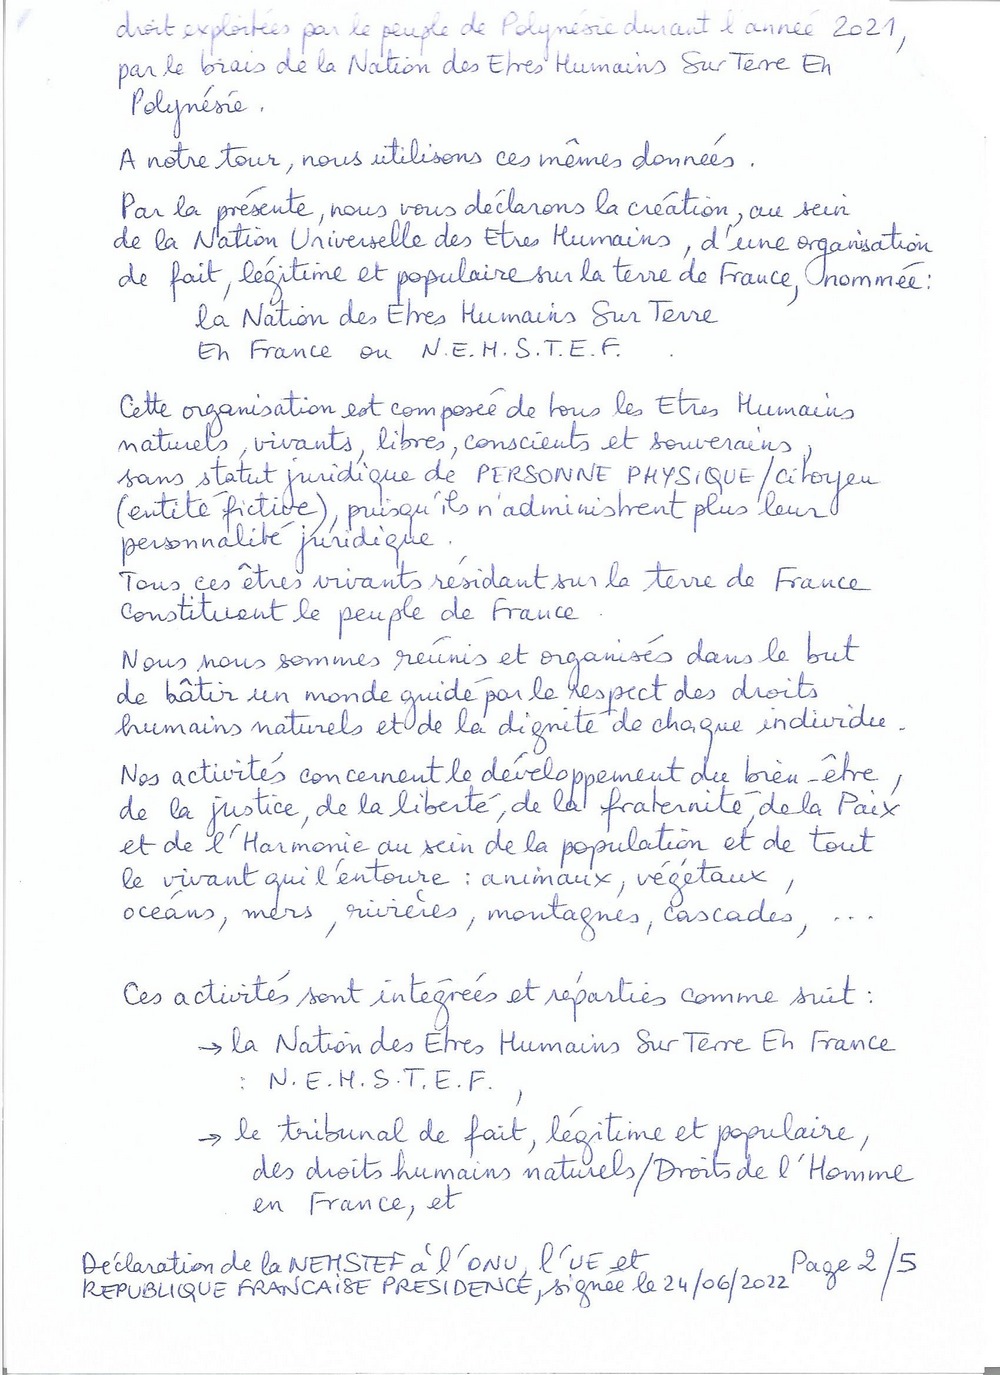 droit exploitées par le peuple de Polynésie durant l'année 2021,
par le biais de la Nation des Etres Humains Sur Terre En
Polynésie.
A notre tour, nous utilisons ces mêmes données.
Par la présente, nous vous déclarons la création, au sein
de la Nation Universelle des Etres Humains, d'une organisation
de fait, légitime et populaire sur la terre de France, nommée :
la Nation des Etres Humains Sur Terre
En France ou N.E.H.S.T.E.F. .
Cette organisation est composée de tous les Etres Humains
naturels, vivants, libres, conscients et souverains,
sans statut juridique de PERSONNE PHYSIQUE/citoyen
(entité fictive), puisqu'ils n'administrent plus leur
personnalité juridique.
Tous ces êtres vivants résidant sur la terre de France
constituent le peuple de France.
Nous nous sommes réunis et organisés dans le but
de bâtir un monde guidé par le respect des droits
humains naturels et de la dignité de chaque individu.
Nos activités concernent le développement du bien-être,
de la justice, de la liberté, de la fraternité, de la Paix
et de l'Harmonie au sein de la population et de tout
le vivant qui l'entoure : animaux, végétaux,
océans, mers, rivières, montagnes, cascades, ...
Ces activités sont intégrées et réparties comme suit :
→ la Nation des Etres Humains Sur Terre En France
: N.E.H.S.T.E.F. ,
→ le tribunal de fait, légitime et populaire,
des droits humains naturels/Droits de l'Homme
en France, et
Déclaration de la NEHSTEF à l'ONU, l'UE et
REPUBLIQUE FRANCAISE PRESIDENCE, signée le 24/06/2022 Page 2/5